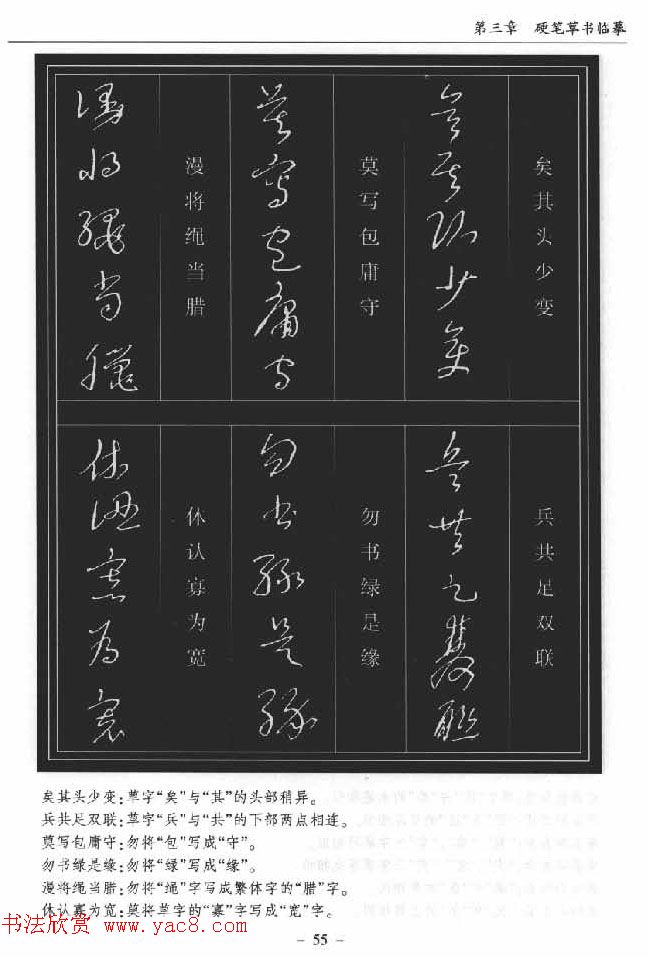 第三章　硬笔草书临摹
矣其头少变
矣其頭少變
莫写包庸守
莫寫包庸守
漫将绳当腊
漫將繩當臘
兵共足双联
兵共足雙聯
勿书绿是缘
勿書綠是緣
休认寡为宽
休認寡為寬
矣其头少变:草字“矣”与“其”的头部稍异。
兵共足双联:草字“兵”与“共”的下部两点相连。
莫写包庸守:勿将“包”写成“守”。
勿书绿是缘:勿将“绿”写成“缘”。
漫将绳当腊:勿将“绳”字写成繁体字的“腊”字。
休认寡为宽:莫将草字的“寡”字写成“宽”字。
书法欣赏 www.yac8.com
- 55 -